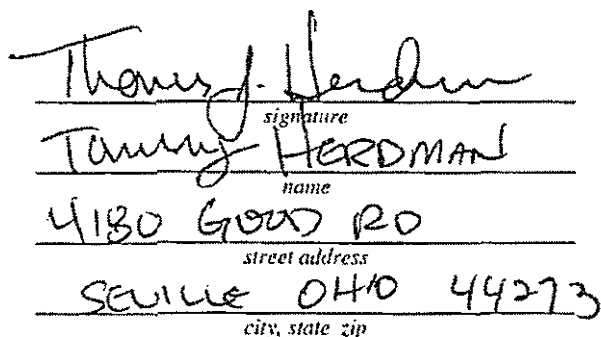 Thomas J. Herdman
signature
Tammy HERDMAN
name
4180 GOOD RD
street address
SEVILLE OHIO 44273
city, state zip